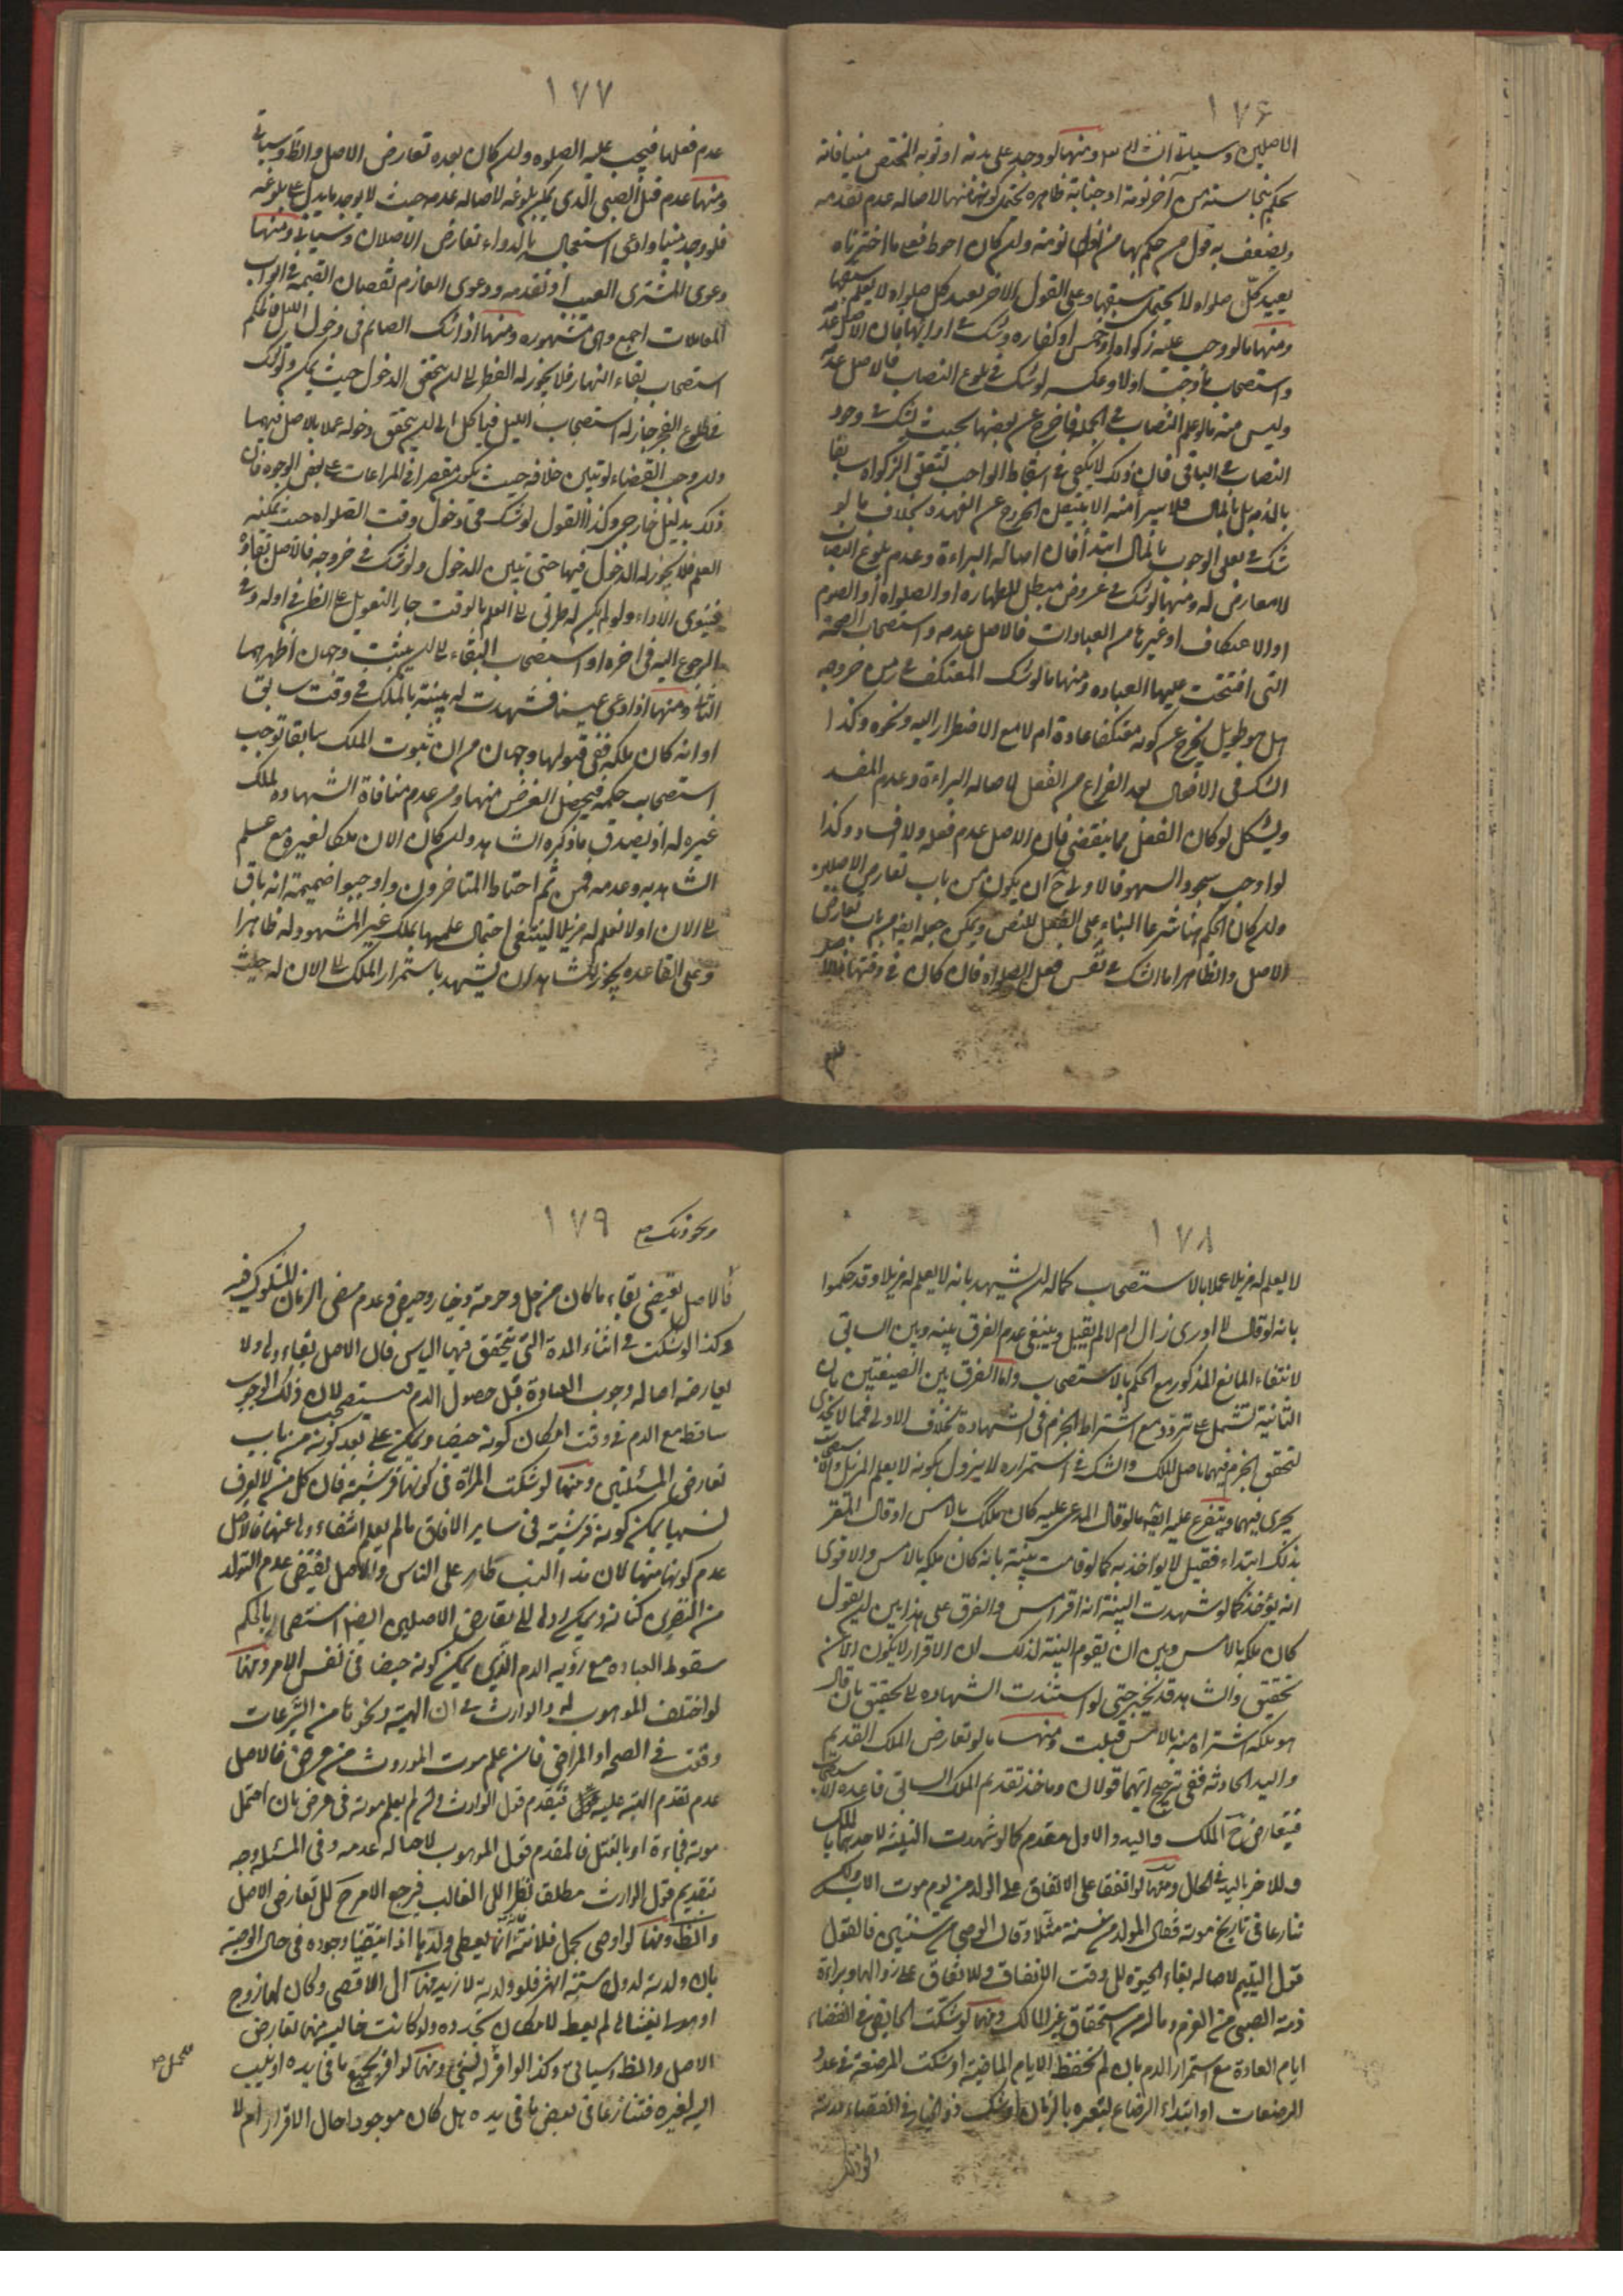 ١٧۶
الاصلين وسياتى انش ومنها لو وجد على بدنه او ثوبه المختص منيا فانه
يحكم بجنابته من آخر نومة او جنابة ظاهرة يحتمل كونه منها لاصالة عدم تقدمه
ويضعف به قول من حكم بها من اول نومته وان كان احوط فعلى ما اخترناه
يعيد كل صلواة لا يحتمل سبقها وعلى القول الاخر يعيد كل صلواة لا يعلم سبقها
ومنها ما لو وجب عليه زكواة او خمس او كفاره وشك فى ادائها فان الاصل عدمه
واستصحاب ما وجب اولا وعكسه لو شك فى بلوغ النصاب فالاصل عدمه
وليس منه ما لو علم النصاب فى الجملة فاخرج عن بعضها بحيث يشك فى وجود
النصاب فى الباقى فان ذلك لا يكفى فى اسقاط الواجب لتعلق الزكواة سابقا
بالمال فلا يبرأ منه الا بتيقن الخروج عن العهده بخلاف ما لو
شك فى تعلق الوجوب بالمال ابتدأ فان اصالة البراءة وعدم بلوغ النصاب
لا معارض له ومنها لو شك فى عروض مبطل للطهاره او الصلواة او الصوم
او الاعتكاف او غيرها من العبادات فالاصل عدمه واستصحاب الصحة
التى افتتحت عليها العباده ومنها ما لو شك المعتكف فى زمن خروجه
هل هو طويل يخرج عن كونه معتكفا عادة ام لا مع الاضطرار اليه ونحوه وكذا
الشك فى الافعال بعد الفراغ من الفعل لاصالة البراءة وعدم المفسد
ويشكل لو كان الفعل مما ينقضى فان الاصل عدم فعله ولا فساد وكذا
لو اوجب سجود السهو فالاولى ح ان يكون من باب تعارض الاصلين
وان كان الحكم هنا شرعا البناء على الفعل للنص ويمكن جعله ايضا من باب تعارض
الاصل والظاهر اما الشك فى نفس فعل الصلواة فان كان فى وقتها فالاصل
عدم
١٧٧
عدم فعلها فيجب عليه الصلوة وان كان بعده تعارض الاصل والظ وسياتى
ومنها عدم قتل الصبى الذى يمكن بلوغه لاصالة عدمه حيث لا يوجد ما يدل على بلوغه
فلو وجد منبتا وادعى استعجاله بالدواء تعارض الاصلان وسياتى ومنها
دعوى المشترى العيب او تقدمه ودعوى الغارم نقصان القيمة فى ابواب
المعاملات اجمع وهى مشهوره ومنها اذا شك الصائم فى دخول الليل فالحكم
استصحاب بقاء النهار فلا يجوز له الفطر الى ان يتحقق الدخول حيث يمكن ولو شك
فى طلوع الفجر جاز له استصحاب الليل فياكل الى ان يتحقق دخوله عملا بالاصل فيهما
وان وجب القضاء لو تبين خلافه حيث يكون مقصرا فى المراعات على بعض الوجوه فان
ذلك بدليل خارجى وكذا القول لو شك فى دخول وقت الصلواة حيث يمكنه
العلم فلا يجوز له الدخول فيها حتى تبين الدخول ولو شك فى خروجه فالاصل بقاؤه
فينوى الاداء ولو لم يكن له طريق الى العلم بالوقت جاز التعويل على الظن فى اوله وفى
الرجوع اليه فى اخره او استصحاب البقاء الى ان يثبت وجهان اظهرهما
الثانى ومنها اذا ادعى عينا فشهدت له بينة بالملك فى وقت سابق
او انه كان ملكه ففى قبولها وجهان من ان ثبوت الملك سابقا توجب
استصحاب حكمه فيحصل الغرض منها ومن عدم منافاة الشهاده لملك
غيره له اذ يصدق ما ذكره الشاهد وان كان الان ملكا لغيره مع علم
الشاهد به وعدمه فمن ثم احتاط المتاخرون واوجبوا ضميمة انه باق
الى الان او لا نعلم له مزيلا لينتفى احتمال علمهما بملك غير المشهود له ظاهرا
وعلى القاعده يجوز للشاهد ان يشهد باستمرار الملك الى الان له حيث
١٧٨
لا يعلم له مزيلا عملا بالاستصحاب كما له ان يشهد بانه لا يعلم له مزيلا وقد حكموا
بانه لو قال لا ادرى زال ام لا لم يقبل وينبغى عدم الفرق بينه وبين السابق
لانتفاء المانع المذكور مع الحكم بالاستصحاب واما الفرق بين الصيغتين بان
الثانية تشمل على تردد مع اشتراط الجزم فى الشهادة بخلاف الاولى فمما لا يجدى
لتحقق الجزم فيهما باصل الملك والشك فى استمراره لا يزول بكونه لا يعلم المزيل والاستصحاب
يجرى فيهما ويتفرع عليه ايضا ما لو قال المدعى عليه كان ملكك بالامس او قال المقر
بذلك ابتداء فقيل لا يواخذ به كما لو قامت بينة بانه كان ملكه بالامس والاقوى
انه يؤخذ كما لو شهدت البينة انه اقر امس والفرق على هذا بين ان يقول
كان ملكه بالامس وبين ان يقوم البينة لذلك ان الاقرار لا يكون الا عن
تحقيق والشاهد قد يخبر حتى لو استندت الشهادة الى تحقيق بان قال
هو ملكه اشتراه منه بالامس قبلت ومنها ما لو تعارض الملك القديم
واليد الحادثه ففى ترجيح ايهما قولان وماخذ تقديم الملك السابق قاعدة الاستصحاب
فيتعارض ح الملك واليد والاول مقدم كما لو شهدت البينة لاحدهما بالملك
وللاخر باليد فى الحال ومنها لو اتفقا على الانفاق على الولد من يوم موت الاب ولكن
تنازعا فى تاريخ موته فقال المولد من سنة مثلا وقال الوصى من سنتين فالقول
قول اليتيم لاصالة بقاء الحيوة الى وقت الاتفاق وللاتفاق على زوالها وبراءة
ذمة الصبى من الغرم وماله من استحقاق غير المالك ومنها لو شكت الحايض فى انقضاء
ايام العادة مع استمرار الدم بان لم تحفظ الايام الماضية او شكت المرضعة فى عدد
الرضعات او ابتداء الرضاع ليعتبره بالزمان او شك ذو الخيار فى انقضاء مدته
ونحو ذلك
١٧٩
ونحو ذلك صح
فالاصل يقتضى بقاء ما كان من حل وحرمة وخيار وحيض وعدم مضى الزمان المشكوك فيه
وكذا لو شكت فى اثناء المدة التى يتحقق فيها الياس فان الاصل بقاءه ولا
يعارضه اصالة وجوب العبادة قبل حصول الدم فيستصحب لان ذلك الوجوب
ساقط مع الدم فى وقت امكان كونه حيضا ويمكن على بعد كونه من باب
تعارض المسئلتين ومنها لو شكت المراة فى كونها قرشية فان كل من لا يعرف
نسبها يمكن كونه قرشية فى ساير الافاق ما لم يعلم انتفاءه عنها فالاصل
عدم كونها منها لان هذا النسب طار على الناس والاصل يقتضى عدم التولد
من النضر بن كنانة ويمكن رده الى تعارض الاصلين ايضا استصحابا لحكم
سقوط العباده مع رؤية الدم الذى يمكن كونه حيضا فى نفس الامر ومنها
لو اختلف الموهوب له والوارث فى ان الهبة ونحوها من التبرعات
وقعت فى الصحة او المرض فان علم موت الموروث من مرض فالاصل
عدم تقدم الهبة عليه فيقدم قول الوارث وان لم يعلم موته فى مرض بان احتمل
موته فجاءة او بالقتل فالمقدم قول الموهوب لاصالة عدمه وفى المسئلة وجه
بتقديم قول الوارث مطلقا نظرا الى الغالب فيرجع الامر ح الى تعارض الاصل
والظ ومنها لو اوصى بحمل فلانة فانما يعطى ولديها اذا تيقنا وجوده فى حال الوصية
بان ولدته لدون ستة اشهر فلو ولدته لازيد منها الى الاقصى وكان لها زوج
او مولى يغشاها لم يعط لامكان تجدده ولو كانت خالية منهما تعارض
الاصل والظ وسياتى وكذا لو اقر له بشئ ومنها لو اقر بجميع ما فى يده او ينسب
اليه لغيره فتنازعا فى بعض ما فى يده هل كان موجودا حال الاقرار ام لا